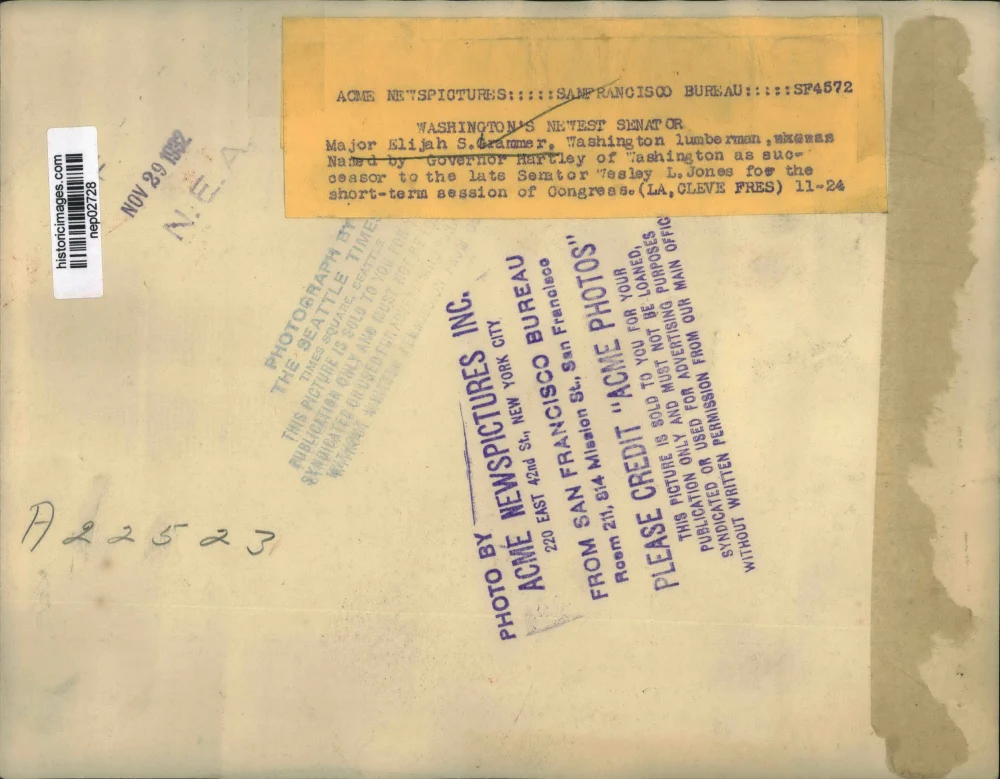 ACME NEWSPICTURES:::::SANFRANCISCO BUREAU:::::SF4572
WASHINGTON'S NEWEST SENATOR
Major Elijah S. Grammer, Washington lumberman,
Named by Governor Hartley of Washington as suc-
cessor to the late Senator Wesley L.Jones for the
short-term session of Congress.(LA,CLEVE FRES) 11-24
historicimages.com
nep02728
NOV 29 1932
N.E.A.
PHOTOGRAPH BY
THE SEATTLE TIMES
TIMES SQUARE, SEATTLE
THIS PICTURE IS SOLD TO YOU
PUBLICATION ONLY AND MUST
SYNDICATED OR USED FOR
WITHOUT WRITTEN
PHOTO BY
ACME NEWSPICTURES INC.
220 EAST 42nd St., NEW YORK CITY
FROM SAN FRANCISCO BUREAU
Room 211, 814 Mission St., San Francisco
PLEASE CREDIT "ACME PHOTOS"
THIS PICTURE IS SOLD TO YOU FOR YOUR
PUBLICATION ONLY AND MUST NOT BE LOANED,
SYNDICATED OR USED FOR ADVERTISING PURPOSES
WITHOUT WRITTEN PERMISSION FROM OUR MAIN OFFIC
A22523